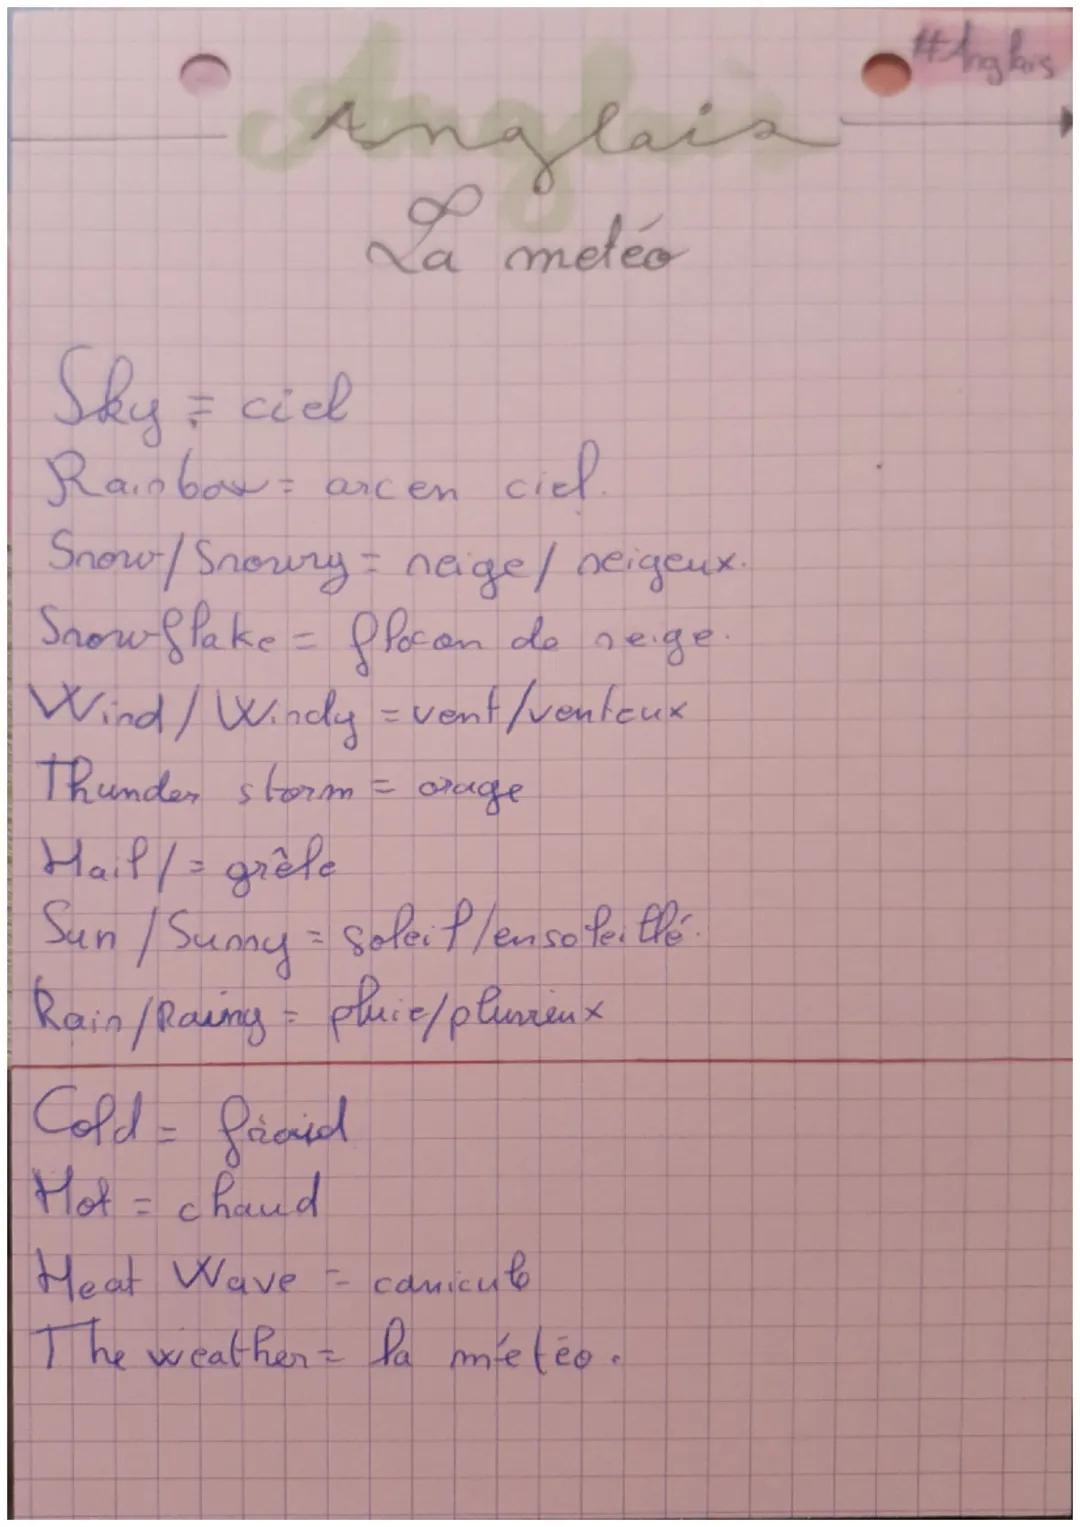 #Anglais
Anglais
La metéo
Sky = ciel
Rainbow = arc en ciel.
Snow/Snowy = neige/ neigeux.
Snowflake = flocon de neige.
Wind/Windy = vent/venteux
Thunder storm = orage
Hail/= grêle
Sun/Sunny = soleil/ensoleillé.
Rain/Rainy = pluie/pluvieux
Cold = froid
Hot = chaud
Heat Wave = canicule
The weather = la météo.